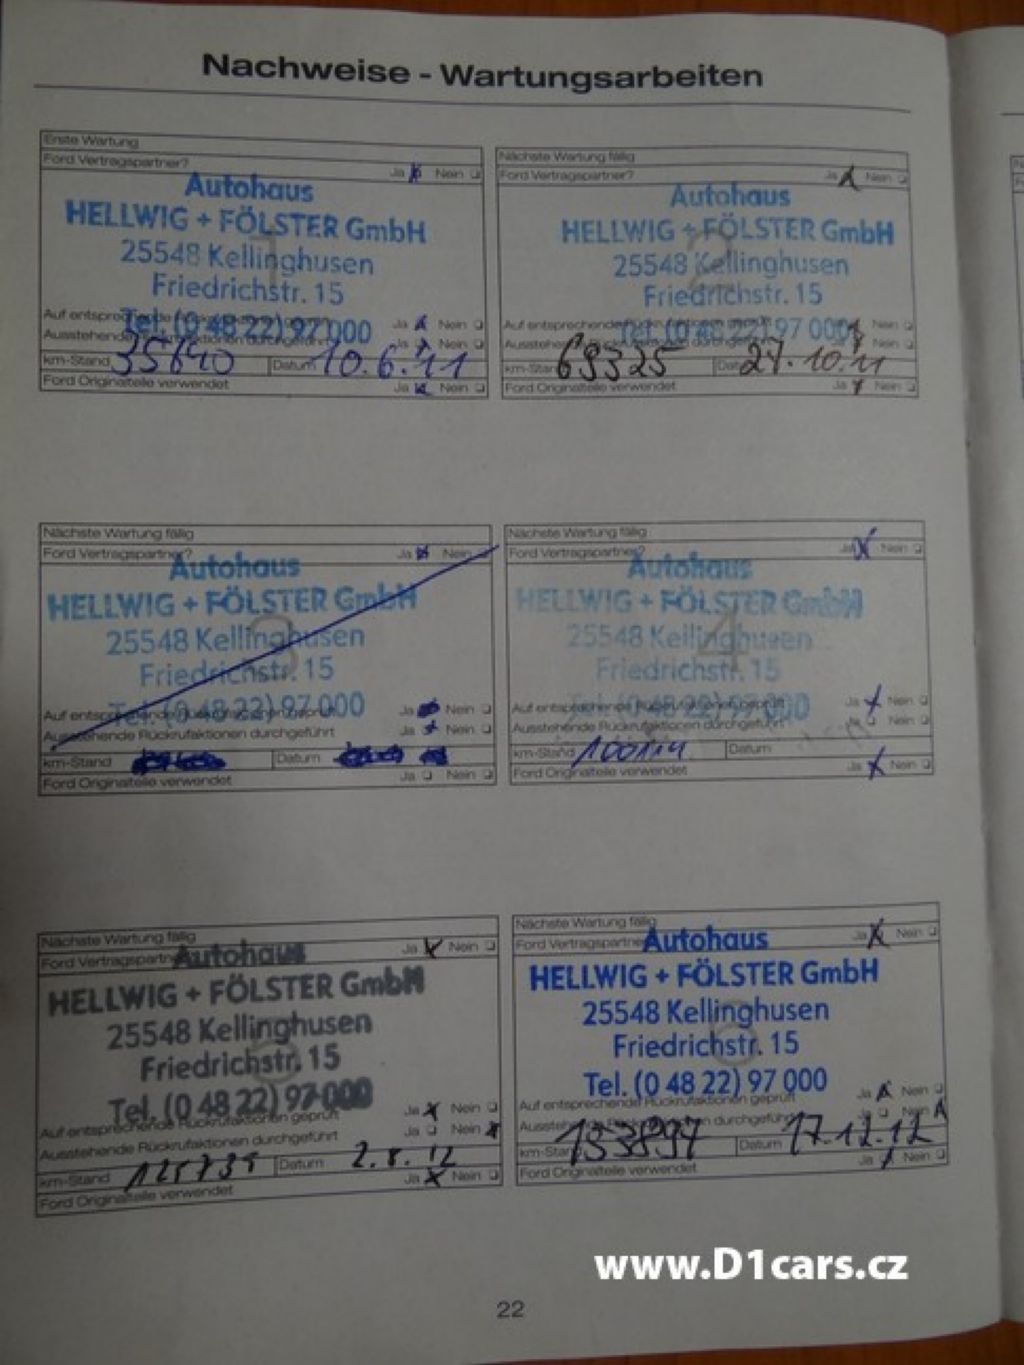 Nachweise - Wartungsarbeiten
Erste Wartung
Ford Vertragspartner? Ja Nein
Autohaus
HELLWIG + FÖLSTER GmbH
25548 Kellinghusen
Friedrichstr. 15
Tel. (0 48 22) 97 000
Auf entsprechende Rückrufaktionen geprüft Ja Nein
Ausstehende Rückrufaktionen durchgeführt Ja Nein
km-Stand 35640 Datum 10.6.11
Ford Originalteile verwendet Ja Nein
1
Nächste Wartung fällig
Ford Vertragspartner? Ja Nein
Autohaus
HELLWIG + FÖLSTER GmbH
25548 Kellinghusen
Friedrichstr. 15
Tel. (0 48 22) 97 000
Auf entsprechende Rückrufaktionen geprüft Ja Nein
Ausstehende Rückrufaktionen durchgeführt
km-Stand 69325 Datum 27.10.11
Ford Originalteile verwendet Ja Nein
2
Nächste Wartung fällig
Ford Vertragspartner? Ja Nein
Autohaus
HELLWIG + FÖLSTER GmbH
25548 Kellinghusen
Friedrichstr. 15
Tel. (0 48 22) 97 000
Auf entsprechende Rückrufaktionen geprüft Ja Nein
Ausstehende Rückrufaktionen durchgeführt Ja Nein
km-Stand Datum
Ford Originalteile verwendet Ja Nein
3
Nächste Wartung fällig
Ford Vertragspartner? Ja Nein
Autohaus
HELLWIG + FÖLSTER GmbH
25548 Kellinghusen
Friedrichstr. 15
Tel. (0 48 22) 97 000
Auf entsprechende Rückrufaktionen geprüft Ja Nein
Ausstehende Rückrufaktionen durchgeführt Ja Nein
km-Stand Datum
Ford Originalteile verwendet Ja Nein
4
Nächste Wartung fällig
Ford Vertragspartner? Ja Nein
Autohaus
HELLWIG + FÖLSTER GmbH
25548 Kellinghusen
Friedrichstr. 15
Tel. (0 48 22) 97 000
Auf entsprechende Rückrufaktionen geprüft Ja Nein
Ausstehende Rückrufaktionen durchgeführt Ja Nein
km-Stand 125735 Datum 2.8.12
Ford Originalteile verwendet Ja Nein
Nächste Wartung fällig
Ford Vertragspartner? Ja Nein
Autohaus
HELLWIG + FÖLSTER GmbH
25548 Kellinghusen
Friedrichstr. 15
Tel. (0 48 22) 97 000
Auf entsprechende Rückrufaktionen geprüft Ja Nein
Ausstehende Rückrufaktionen durchgeführt Ja Nein
km-Stand 153897 Datum 17.12.12
Ford Originalteile verwendet Ja Nein
6
www.D1cars.cz
22